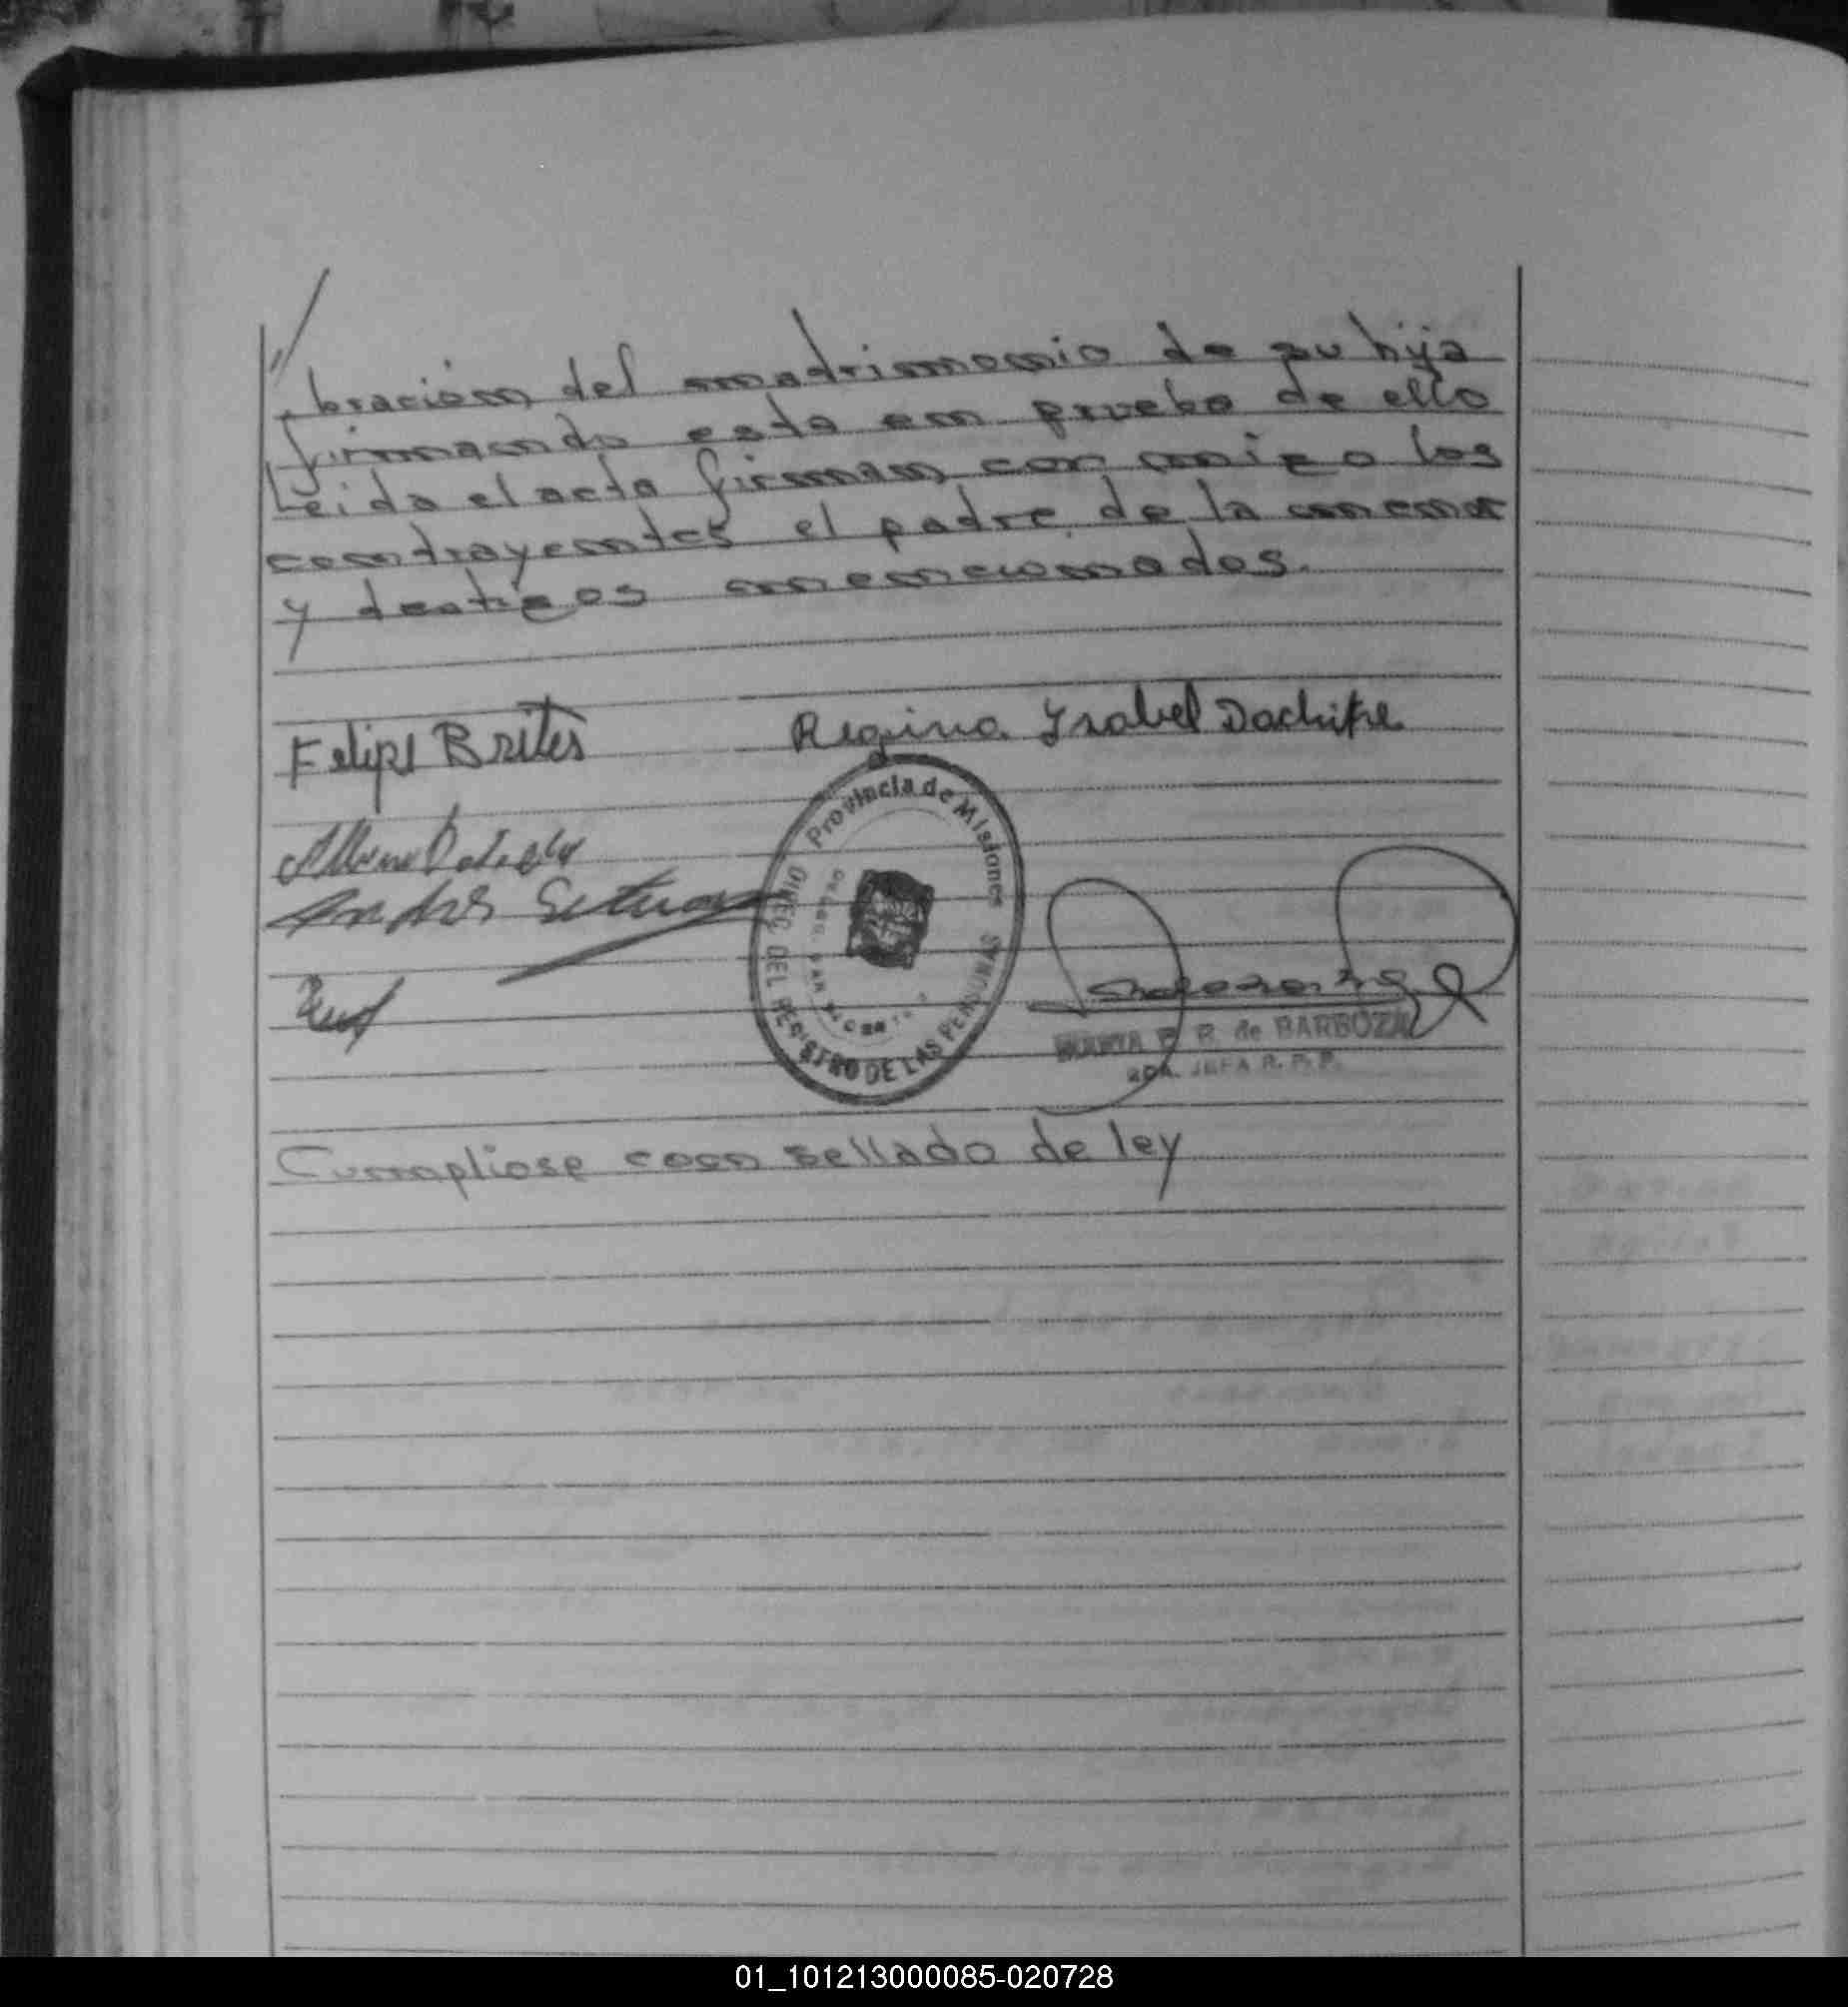 //
bracion del matrimonio de su hija
firmando esta en prueba de ello
Leida el acta firman con migo los
contrayentes el padre de la menor
y testigos mencionados.
Felipe Brites Regina Ysabel Dachike
Andres
Provincia de Misiones
DIREC. DEL REGISTRO DE LAS PERSONAS
MARTA B. R. de BARBOZA
JEFA R. P. P.
Cumpliose con sellado de ley
01_101213000085-020728